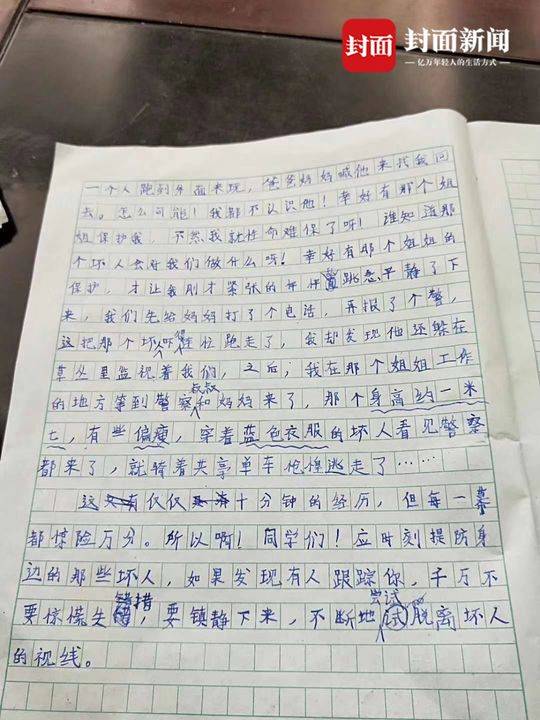 封面
封面新闻
亿万年轻人的生活方式
一个人跑到外面来玩，爸爸妈妈喊他来找我回
去。怎么可能！我都不认识他！幸好有那个姐
姐保护我，不然我就性命难保了呀！谁知道那
个坏人会对我们做什么呀！幸好有那个姐姐的
保护，才让我刚才紧张的怦怦直跳恶平静了下
来，我们先给妈妈打了个电话，再报了个警，
这把那个坏人吓得连忙跑走了，我却发现他还躲在
草丛里监视着我们，之后，我在那个姐姐工作
的地方等到警察叔叔和妈妈来了，那个身高约一米
七，有些偏瘦，穿着蓝色衣服的坏人看见警察
都来了，就骑着共享单车仓惶逃走了……
这仅仅十分钟的经历，但每一幕
都惊险万分。所以啊！同学们！应时刻提防身
边的那些坏人，如果发现有人跟踪你，千万不
要惊慌失措，要镇静下来，不断地尝试脱离坏人
的视线。